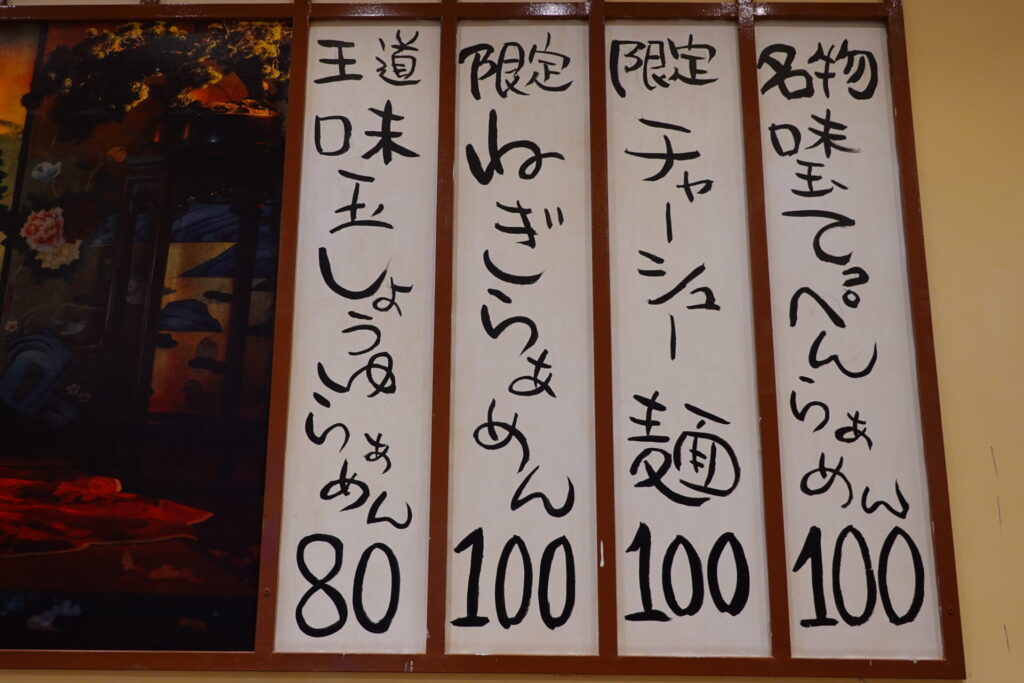 名物 味玉てっぺんらぁめん 100
限定 チャーシュー麺 100
限定 ねぎらぁめん 100
王道 味玉しょうゆらぁめん 80